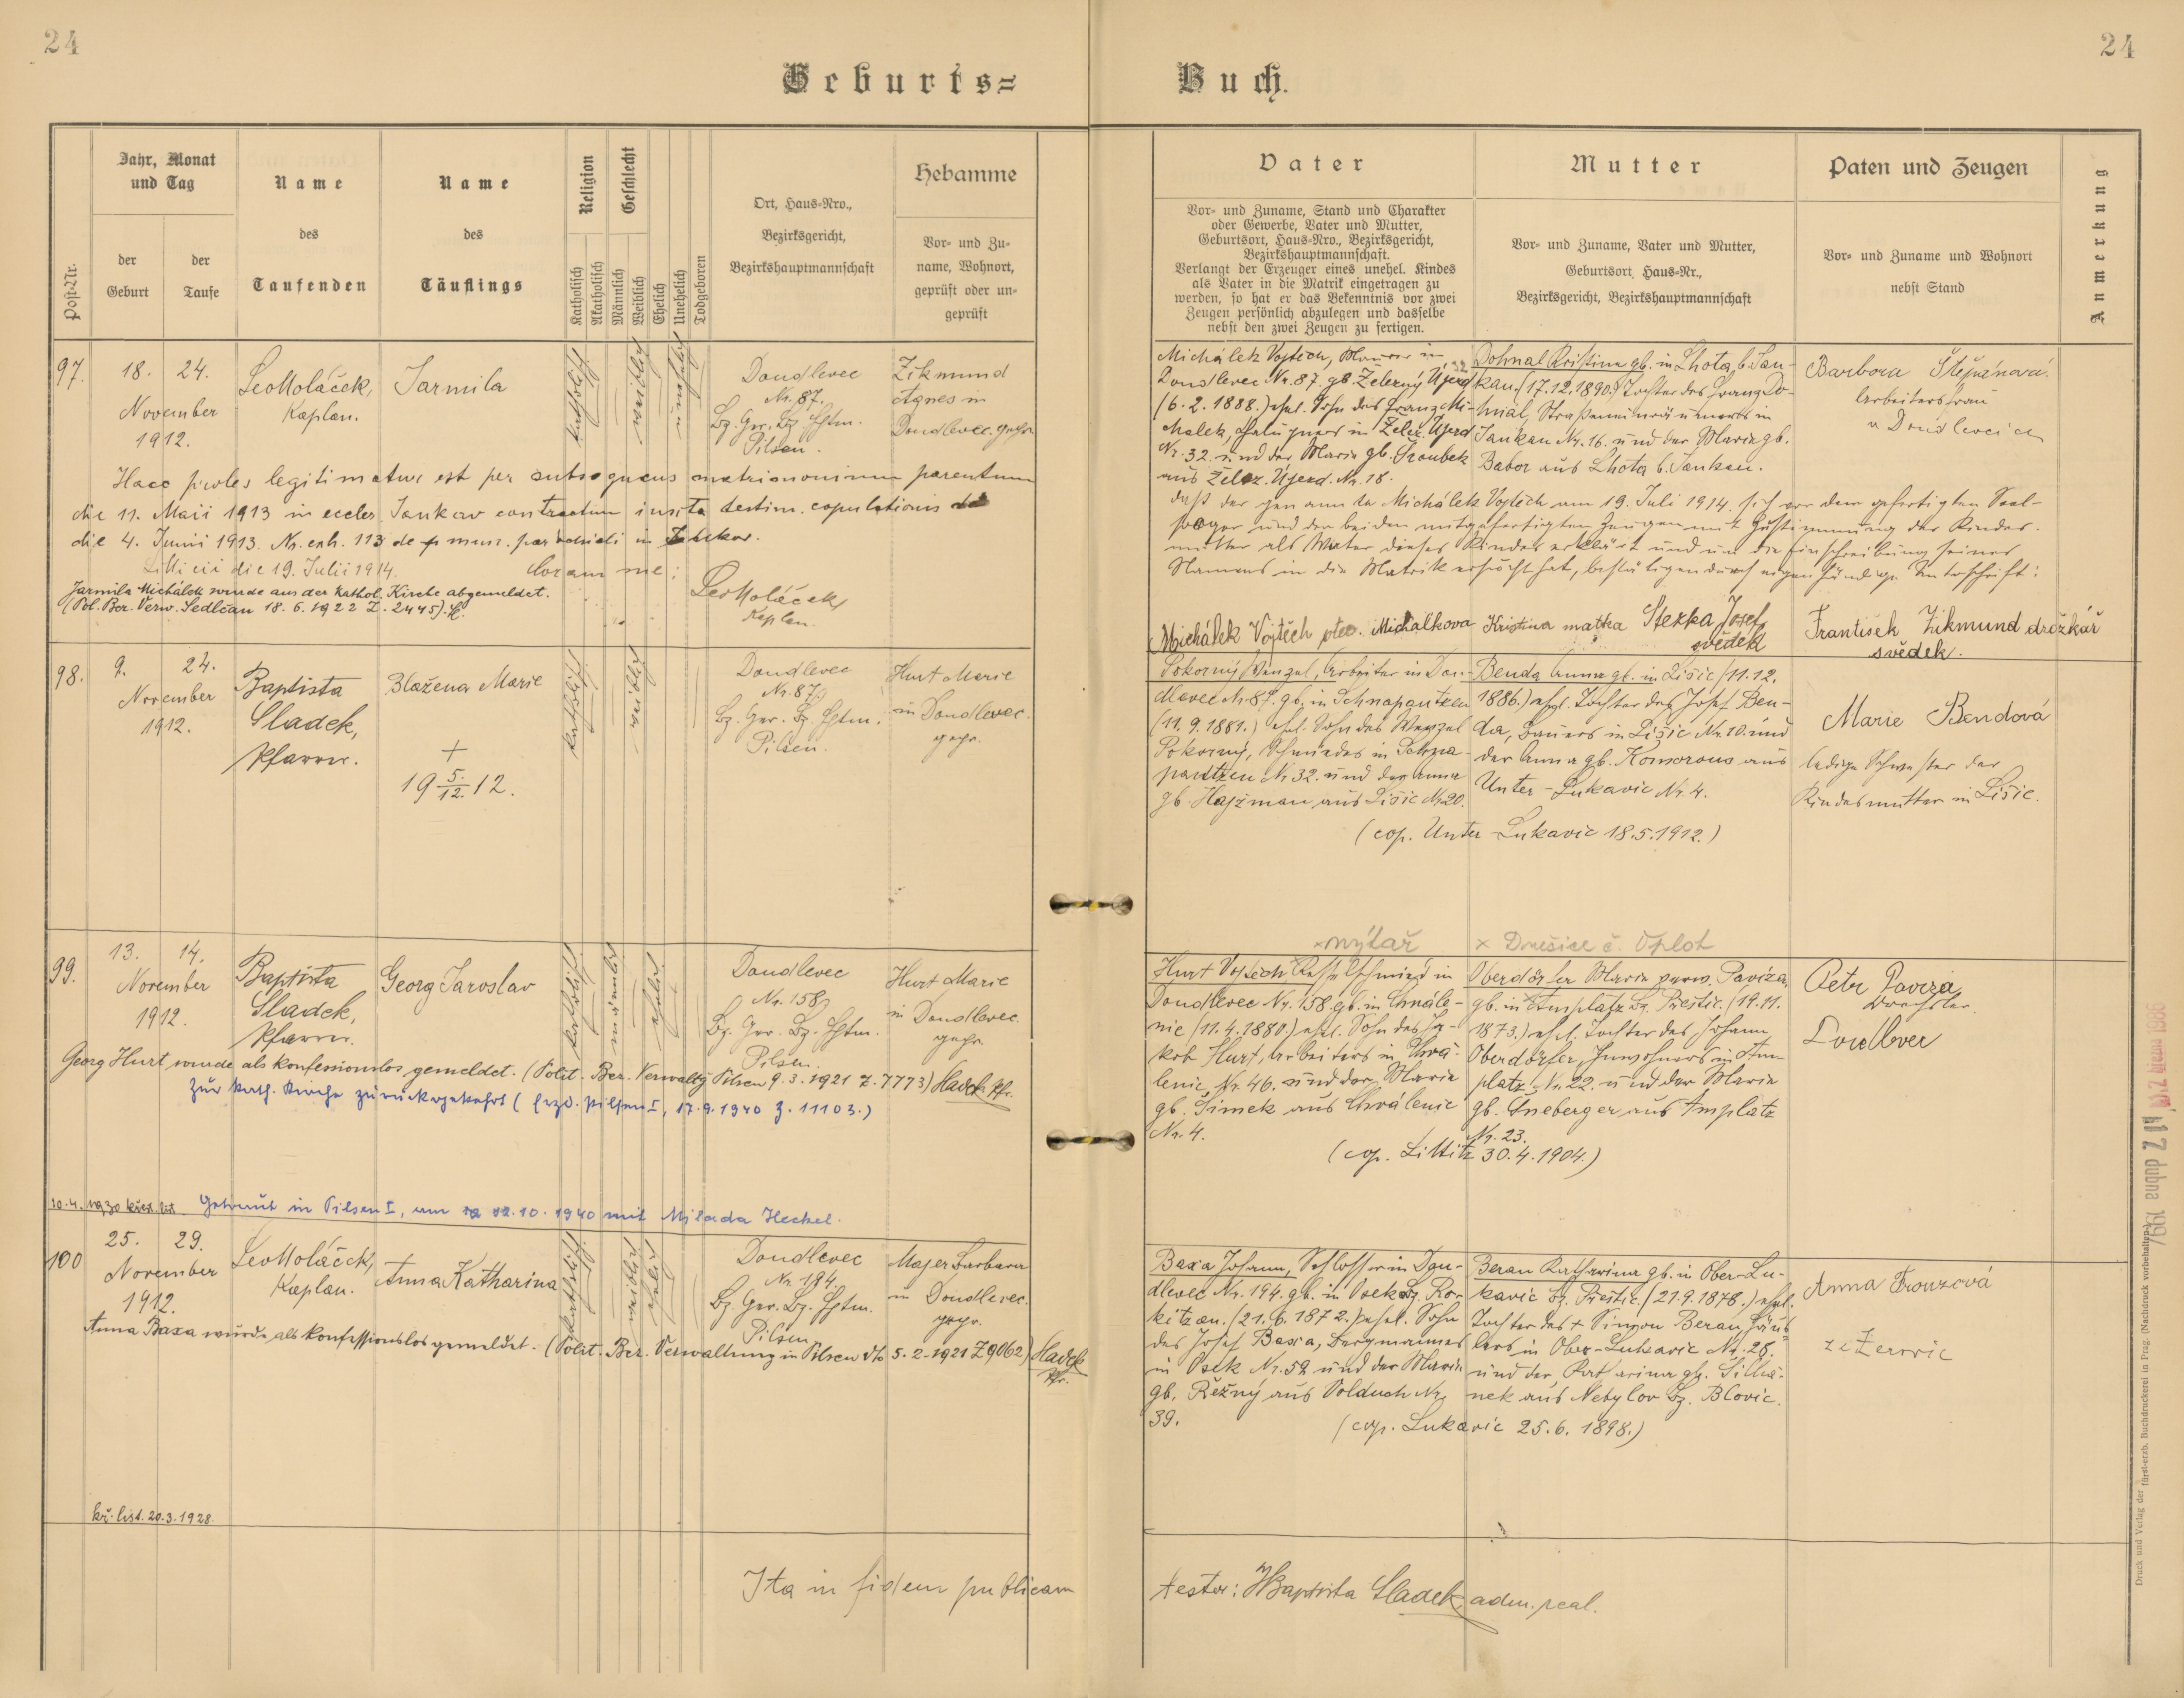 24
24
Geburts=
Buch.
Post-Nr.
Jahr, Monat
und Tag
der
Geburt
der
Taufe
Name
des
Taufenden
Name
des
Täuflings
Religion
Katholisch
Akatholisch
Geschlecht
Männlich
Weiblich
Ehelich
Unehelich
Todgeboren
Ort, Haus-Nro.,
Bezirksgericht,
Bezirkshauptmannschaft
Hebamme
Vor- und Zu-
name, Wohnort,
geprüft oder un-
geprüft
Vater
Vor- und Zuname, Stand und Charakter
oder Gewerbe, Vater und Mutter,
Geburtsort, Haus-Nro., Bezirksgericht,
Bezirkshauptmannschaft.
Verlangt der Erzeuger eines unehel. Kindes
als Vater in die Matrik eingetragen zu
werden, so hat er das Bekenntnis vor zwei
Zeugen persönlich abzulegen und dasselbe
nebst den zwei Zeugen zu fertigen.
Mutter
Vor- und Zuname, Vater und Mutter,
Geburtsort, Haus-Nr.,
Bezirksgericht, Bezirkshauptmannschaft
Paten und Zeugen
Vor- und Zuname und Wohnort
nebst Stand
Anmerkung
97.
18. 24.
November
1912.
Leo Moláček,
Kaplan.
Jarmila
katholisch
weiblich
unehelich
Doudlevec
Nr. 87.
Bz. Ger. Bz. Hptm.
Pilsen.
Zikmund
Agnes in
Doudlevec. gepr.
Michálek Vojtěch, Maurer in
Doudlevec Nr. 87. gb. Železný Újezd
(6. 2. 1888.) ehel. Sohn des Franz Mi-
chalek, in Želez. Újezd
Nr. 32. und der Marie gb. Hroubek
aus Želez. Újezd. Nr. 18.
Dohnal Kristina gb. in Lhota b. Jan-
kau. (17. 12. 1890.) Tochter des Franz Do-
hnal, Straßeneinräumers in
Jankau Nr. 16. und der Marie gb.
Babor aus Lhota b. Jankau.
Barbora Štěpánová.
Arbeitersfrau
v Doudlevcích
Haec proles legitimatur est per subsequens matrimonium parentum
die 11. Maii 1913 in eccles. Jankov contractum iuxta testim. copulationis
die 4. Junii 1913. Nr. exh. 113 de
Litticii die 19. Julii 1914. Coram me:
Leo Moláček
Kaplan
Jarmila Michálek wurde aus der kathol. Kirche abgemeldet.
(Pol. Bez. Verw. Sedlčan 18. 6. 1922 Z. 2445).
daß der genannte Michálek Vojtěch am 19. Juli 1914 sich vor dem gefertigten Seel-
sorger und den beiden mitgefertigten Zeugen mit Zustimmung der Kindes-
mutter als Vater dieses Kindes erklärt und um die Einschreibung seines
Namens in die Matrik ersucht hat, bestätigen durch eigenhändige Unterschrift:
Michálek Vojtěch otec. Michalkova Kristina matka Stezka Josef
svědek
František Zikmund drožkář
svědek.
98.
9. 24.
November
1912.
Baptista
Sladek,
Pfarrer.
Blažena Marie
+
19 5./12. 12.
katholisch
weiblich
Doudlevec
Nr. 87.
Bz. Ger. Bz. Hptm.
Pilsen.
Hurt Marie
in Doudlevec.
gepr.
Pokorný Wenzel, Arbeiter in Dou-
dlevec Nr. 87. gb. in Schnapautzen
(11. 9. 1881.) ehel. Sohn des Wenzel
Pokorný, Schmiedes in Schna-
pautzen Nr. 32. und der Anna
gb. Hajžman aus Lišic Nr. 20.
Benda Anna gb. in Lišic (11. 12.
1886.) ehel. Tochter des Josef Ben-
da, Bauers in Lišic Nr. 10. und
der Anna gb. Komorous aus
Unter-Lukavic Nr. 4.
(cop. Unter-Lukavic 18. 5. 1912.)
Marie Bendová
ledige Schwester der
Kindesmutter in Lišic.
99.
13. 14.
November
1912.
Baptista
Sladek,
Pfarrer.
Georg Jaroslav
katholisch
männlich
ehelich
Doudlevec
Nr. 158.
Bz. Ger. Bz. Hptm.
Pilsen.
Hurt Marie
in Doudlevec
gepr.
× nýtař
× Dnešice č. Oplot
Hurt Vojtěch Kesselschmied in
Doudlevec Nr. 158. gb. in Chvále-
nic (11. 4. 1880.) ehel. Sohn des Ja-
kob Hurt, Arbeiters in Chvá-
lenic Nr. 46. und der Marie
gb. Šimek aus Chválenic
Nr. 4.
Oberdörfer Marie verw. Paviza,
gb. in Amplatz Bz. Prestic. (19. 11.
1873.) ehel. Tochter des Johann
Oberdörfer, Inwohners in Am-
platz Nr. 22. und der Marie
gb. Gneberger aus Amplatz
Nr. 23.
(cop. Littitz 30. 4. 1904.)
Petr Paviza
Drechsler
Doudlevec
Georg Hurt, wurde als konfessionslos gemeldet. (Polit. Bez. Verwaltg Pilsen 9. 3. 1921 Z. 7773) Sladek Pfr.
Zur kath. Kirche zurückgekehrt (Erzd. Pilsen I, 17. 9. 1940 Z. 11103.)
10. 4. 1930 křest. list. Getraut in Pilsen I, am 12. 10. 1940 mit Milada Heckel.
100
25. 29.
November
1912.
Leo Moláček,
Kaplan.
Anna Katharina
katholisch
weiblich
ehelich
Doudlevec
Nr. 194.
Bz. Ger. Bz. Hptm.
Pilsen
Majer Barbara
in Doudlevec.
gepr.
Baxa Johann, Schlosser in Dou-
dlevec Nr. 194. gb. in Vosek Bz. Ro-
kitzan. (21. 6. 1872.) ehel. Sohn
des Josef Baxa, Bergmannes
in Vosek Nr. 52 und der Marie
gb. Řežný aus Volduch Nr.
39.
Beran Katharina gb. in Ober-Lu-
kavic Bz. Prestic. (21. 9. 1878.) ehel.
Tochter des + Simon Beran, Häus-
lers in Ober-Lukavic Nr. 28.
und der Katharina gb.
nek aus Netzylov Bz. Blovic.
(cop. Lukavic 25. 6. 1898.)
Anna Frouzová
ze Žerovic
Anna Baxa wurde als konfessionslos gemeldet. (Polit. Bez. Verwaltung in Pilsen dto 5. 2. 1921 Z 9062) Sladek
Pfr.
kř. list. 20. 3. 1928.
Ita in fidem publicam
testor: Baptista Sladek, adm. paal.
Druck und Verlag der fürst-erzb. Buchdruckerei in Prag. (Nachdruck vorbehalten.)